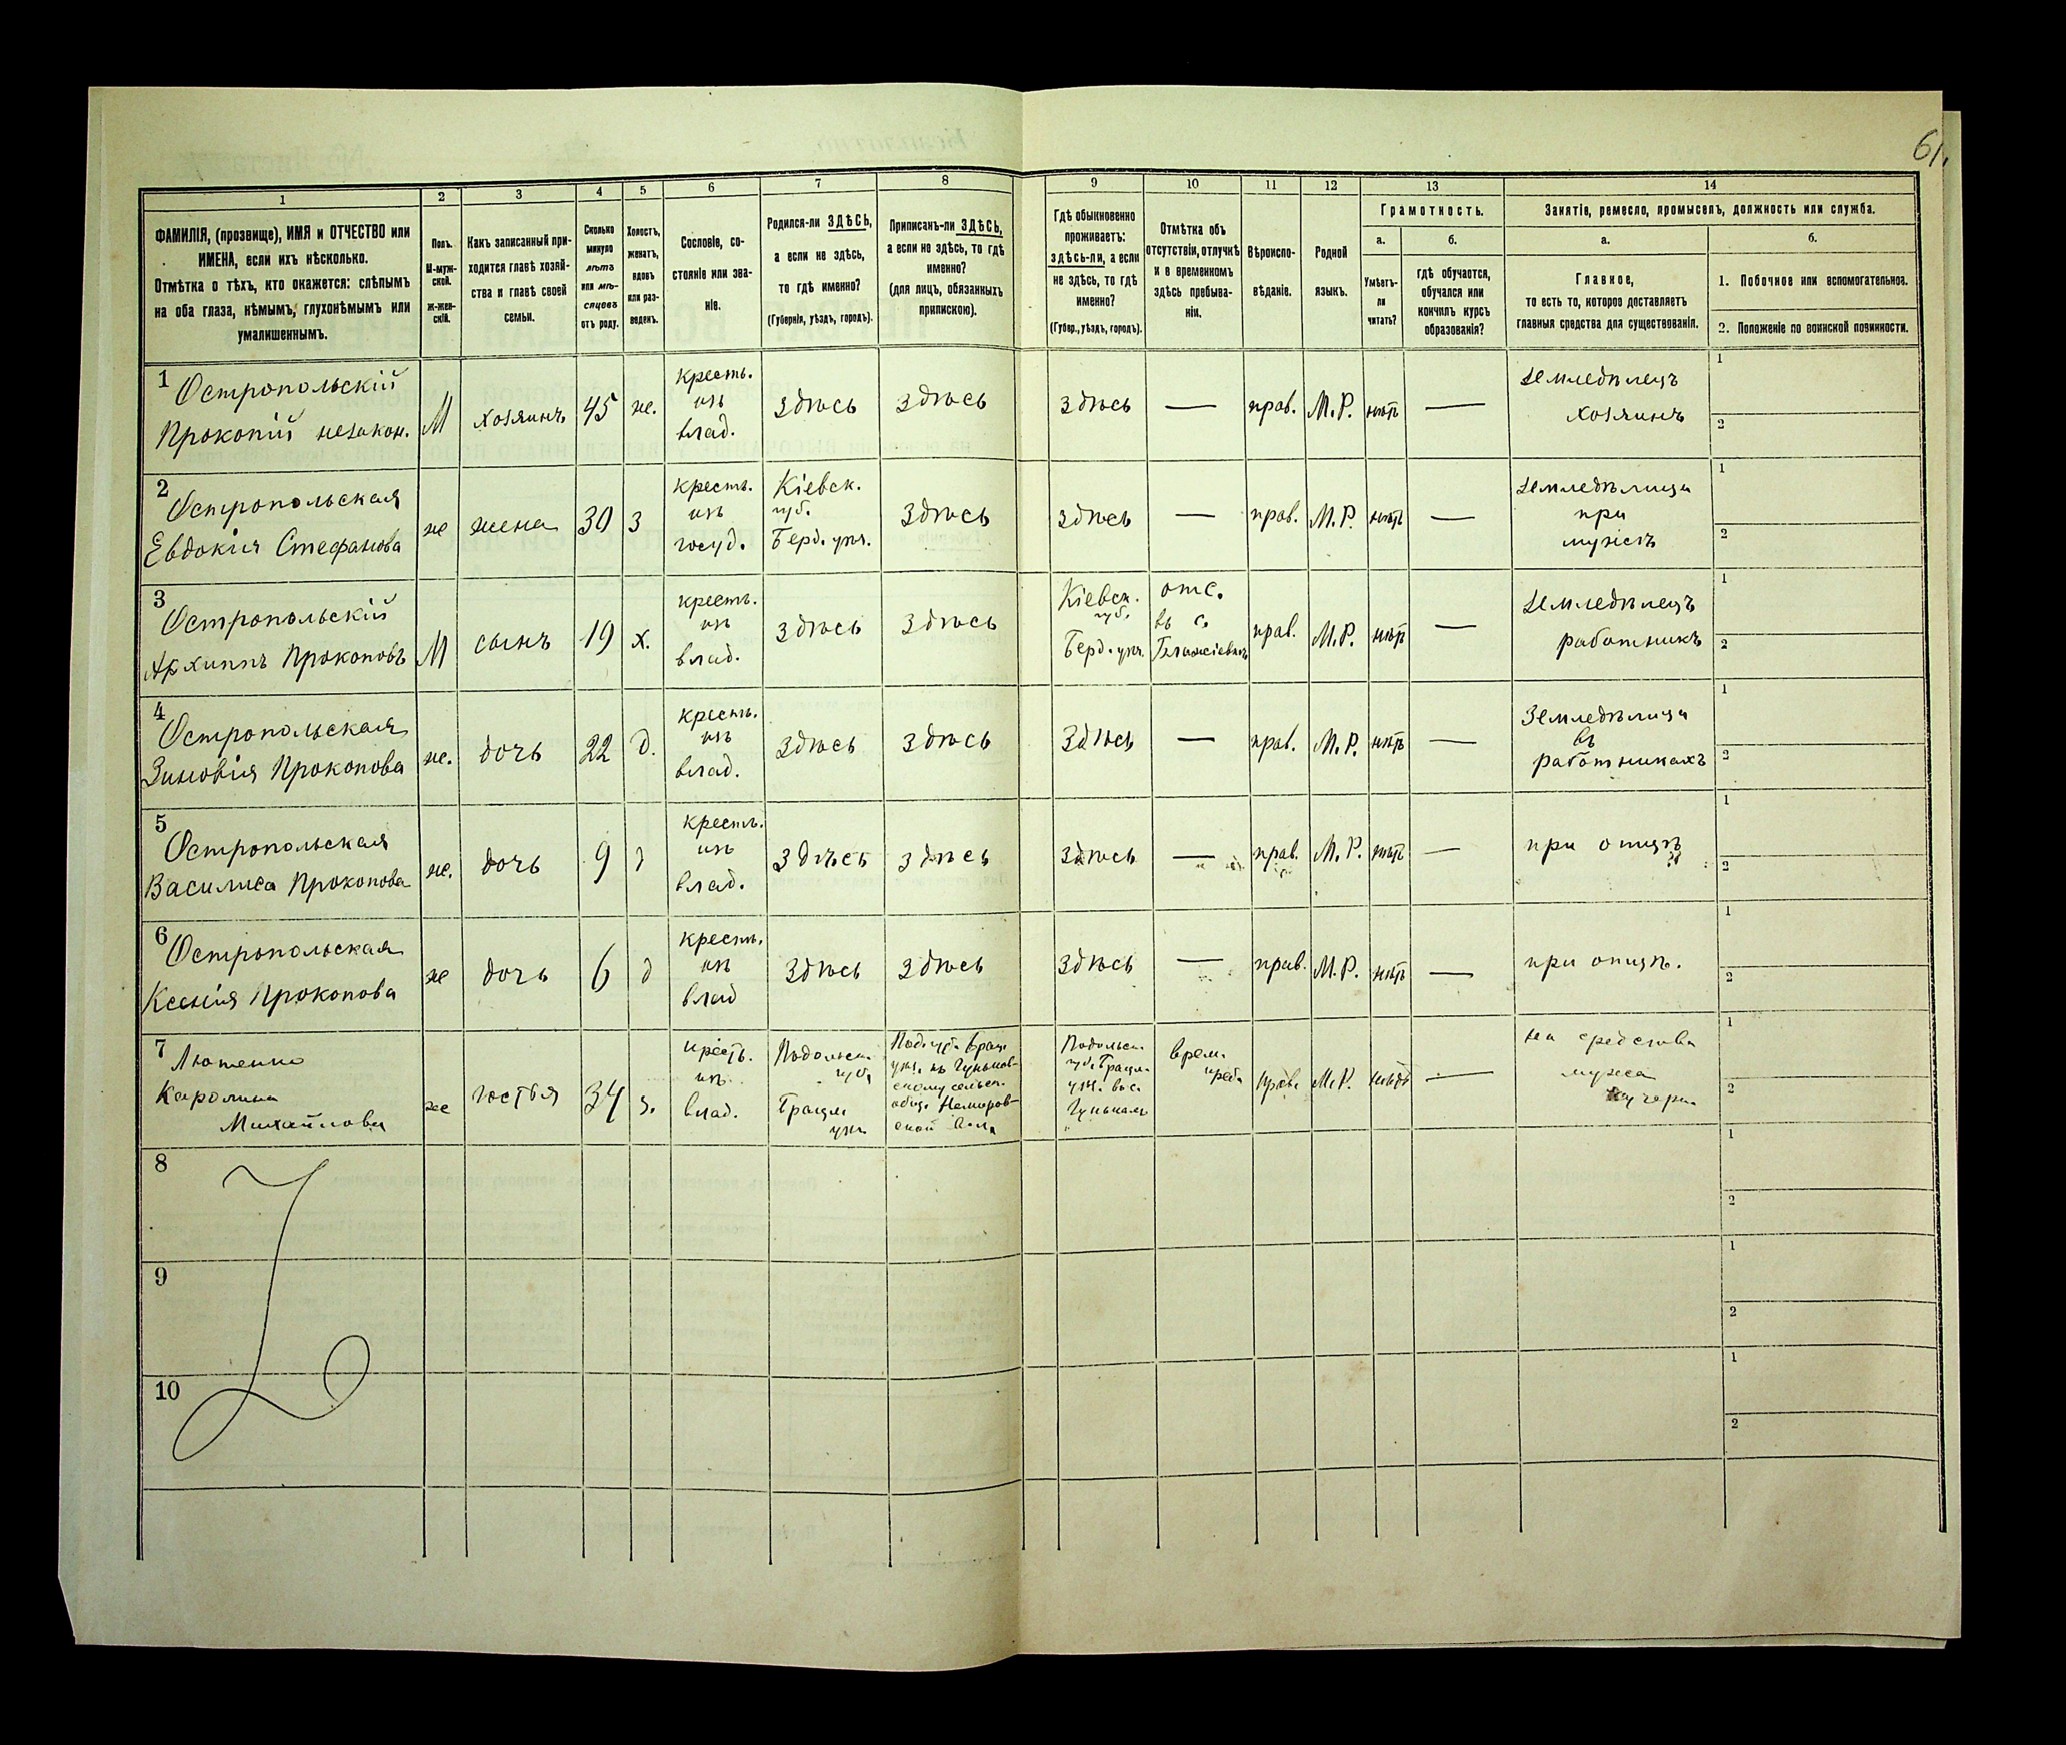 61.
1 2 3 4 5 6 7 8 9 10 11 12 13 14
ФАМИЛІЯ, (прозвище), ИМЯ и ОТЧЕСТВО или
ИМЕНА, если ихъ нѣсколько.
Отмѣтка о тѣхъ, кто окажется: слѣпымъ
на оба глаза, нѣмымъ, глухонѣмымъ или
умалишеннымъ.
Полъ.
М-муж-
ской.
Ж-жен-
скій.
Какъ записанный при-
ходится главѣ хозяй-
ства и главѣ своей
семьи.
Сколько
минуло
лѣтъ
или мѣ-
сяцовъ
отъ роду.
Холостъ,
женатъ,
вдовъ
или раз-
веденъ.
Сословіе, со-
стояніе или зва-
ніе.
Родился-ли ЗДѢСЬ,
а если не здѣсь,
то гдѣ именно?
(Губернія, уѣздъ, городъ).
Приписанъ-ли ЗДѢСЬ,
а если не здѣсь, то гдѣ
именно?
(для лицъ, обязанныхъ
припискою).
Гдѣ обыкновенно
проживаетъ:
здѣсь-ли, а если
не здѣсь, то гдѣ
именно?
(Губер., уѣздъ, городъ).
Отмѣтка объ
отсутствіи, отлучкѣ
и о временномъ
здѣсь пребыва-
ніи.
Вѣроиспо-
вѣданіе.
Родной
языкъ.
Грамотность.
а.
Умѣетъ-
ли
читать?
б.
гдѣ обучается,
обучался или
кончилъ курсъ
образованія?
Занятіе, ремесло, промыселъ, должность или служба.
а.
Главное,
то есть то, которое доставляетъ
главныя средства для существованія.
б.
1. Побочное или вспомогательное.
2. Положеніе по воинской повинности.
1
Остропольскій
Прокопій незакон.
М
хозяинъ
45
же.
кресть.
изъ
влад.
здѣсь
здѣсь
здѣсь
—
прав.
М.Р.
нѣтъ
—
Земледѣлецъ
хозяинъ
1
2
2
Остропольская
Евдокія Стефанова
же
жена
30
з
кресть.
изъ
госуд.
Кіевск.
губ.
Берд. уѣз.
здѣсь
здѣсь
—
прав.
М.Р.
нѣтъ
—
Земледѣлица
при
мужѣ
1
2
3
Остропольскій
Архиппъ Прокоповъ
М
сынъ
19
х.
кресть.
изъ
влад.
здѣсь
здѣсь
Кіевск.
губ.
Берд. уѣз.
отс.
въ с.
прав.
М.Р.
нѣтъ
—
Земледѣлецъ
работникъ
1
2
4
Остропольская
Зиновія Прокопова
же.
дочь
22
д.
кресть.
изъ
влад.
здѣсь
здѣсь
здѣсь
—
прав.
М.Р.
нѣтъ
—
Земледѣлица
въ
работникахъ
1
2
5
Остропольская
Василиса Прокопова
же.
дочь
9
д
кресть.
изъ
влад.
здѣсь
здѣсь
здѣсь
—
прав.
М.Р.
нѣтъ
—
при отцѣ
1
2
6
Остропольская
Ксенія Прокопова
же
дочь
6
д
кресть.
изъ
влад
здѣсь
здѣсь
здѣсь
—
прав.
М.Р.
нѣтъ
—
при отцѣ.
1
2
7
Каролина
Михайлова
же
гостья
34
з.
крест.
изъ
влад.
Подольск.
губ.
Брацл.
уѣз.
Под. губ. Брац.
сельск.
общ. Немиров-
ской вол.
Подольск.
губ. Брацл.
уѣз. въ с.
врем.
преб.
прав.
М.Р.
—
на средства
мужа
1
2
8
1
2
9
1
2
10
1
2